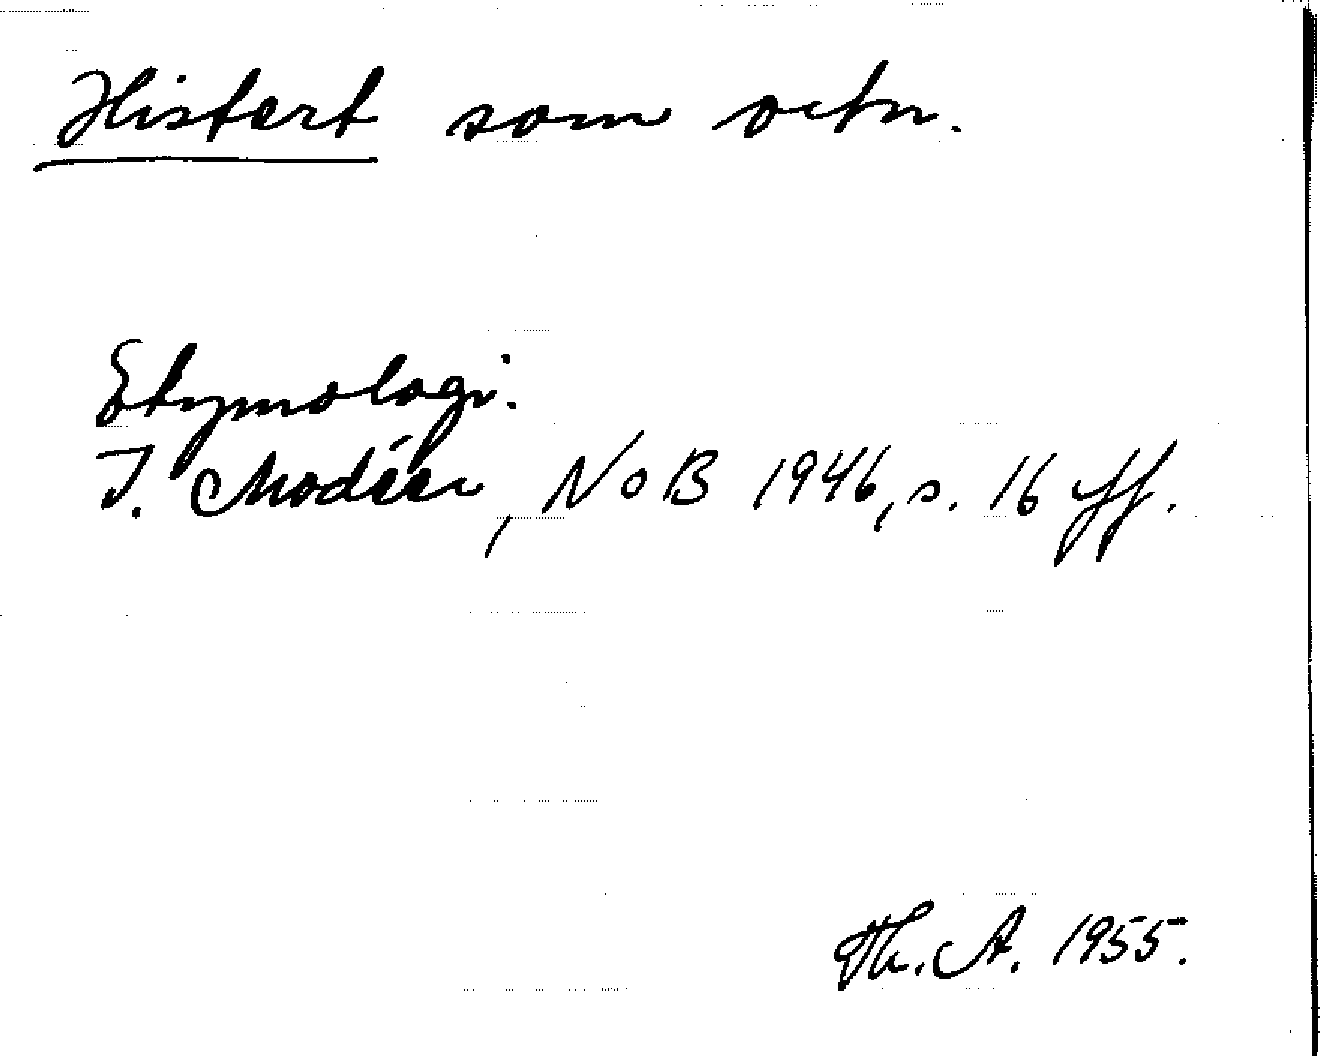 Histart som ortn.
Etymologi.
I. Modéer, NoB 1946, s. 16 ff.
Th. A. 1955.